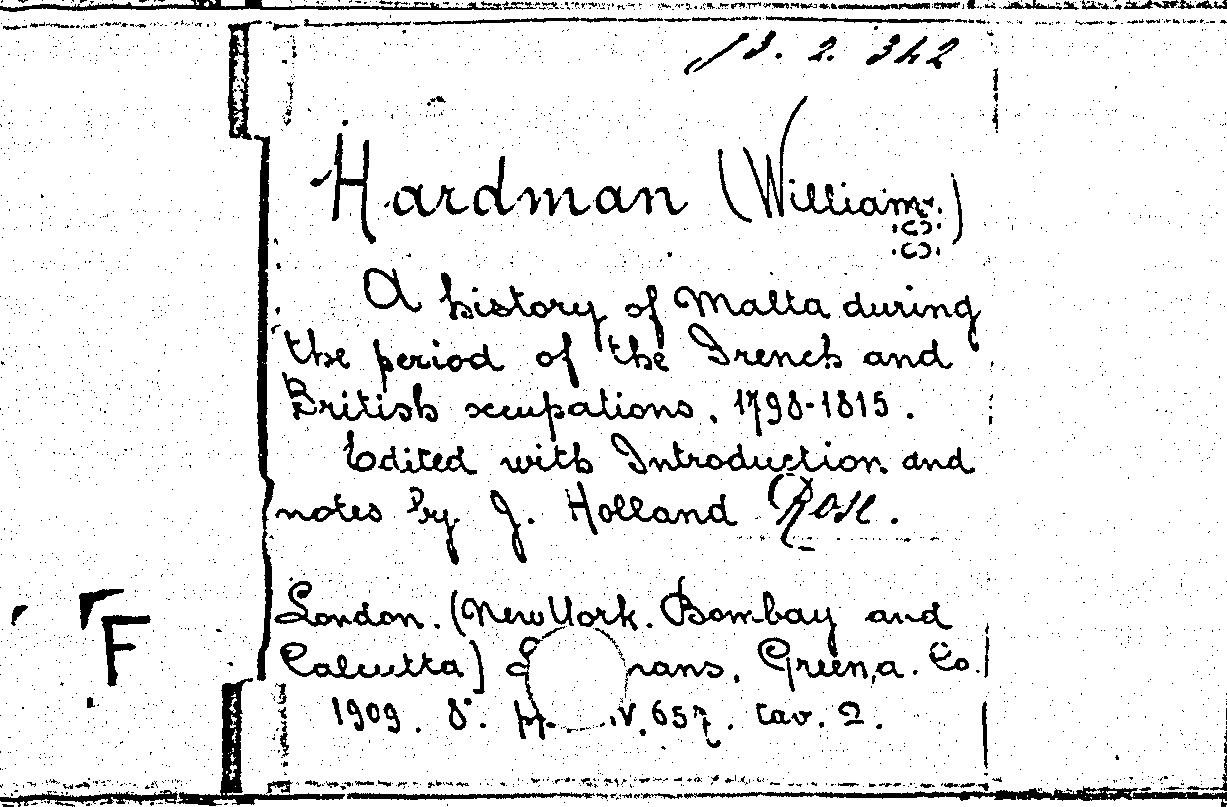 13. 2. 342
Hardman (William.)
A history of Malta during
the period of the French and
British occupations, 1798-1815.
Edited with Introduction and
notes by J. Holland Rose.
London. (New York. Bombay and
Calcutta) Green, a. Co.
1909. 8°. pp. 657. tav. 2.
F